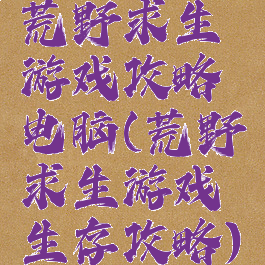 荒野求生
游戏攻略
电脑(荒野
求生游戏
生存攻略)